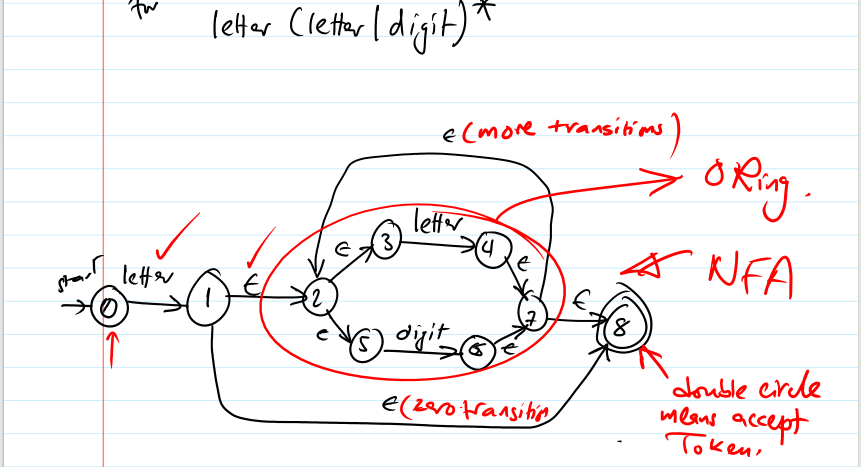 for
letter (letter | digit)*
ε (more transitions)
ORing.
letter
ε
3
4
ε
NFA
start
letter
ε
0
1
2
7
ε
8
ε
5
digit
6
ε
ε (zero transition
double circle
means accept
Token.